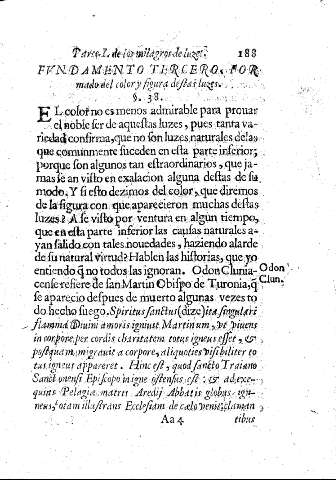 Parte I. de los milagros de luzes. 188
FVNDAMENTO TERCERO, FOR-
mado del color y figura destas luzes.
§. 38.
EL color no es menos admirable para prouar
el noble ser de aquestas luzes, pues tanta va-
riedad confirma, que no son luzes naturales delas
que comunmente suceden en esta parte inferior;
porque son algunos tan estraordinarios, que ja-
mas se an visto en exalacion alguna destas de su
modo. Y si esto dezimos del color, que diremos
de la figura con que aparecieron muchas destas
luzes? A se visto por ventura en algun tiempo,
que en esta parte inferior las causas naturales a-
yan salido con tales nouedades, haziendo alarde
de su natural virtud? Hablen las historias, que yo
entiendo q̃ no todos las ignoran. Odon Clunia-
cense refiere de san Martin Obispo de Turonia, q̃
se aparecio despues de muerto algunas vezes to
do hecho fuego. Spiritus sanctus (dize) ita singulari
flamma Diuini amoris igniuit Martinum, vt viuens
in corpore, per cordis charitatem totus igneus esset, &
postquam migrauit a corpore, aliquoties visibiliter to-
tus igneus appareret. Hinc est, quod sancto Traiano
Sanctonensi Episcopo in igne ostensus est: & ad exe-
quias Pelagia matris Aredij Abbatis globus ig-
neus, totam illustrans Ecclesiam de cælo venit, claman
Aa 4 tibus
Odon
Clun.